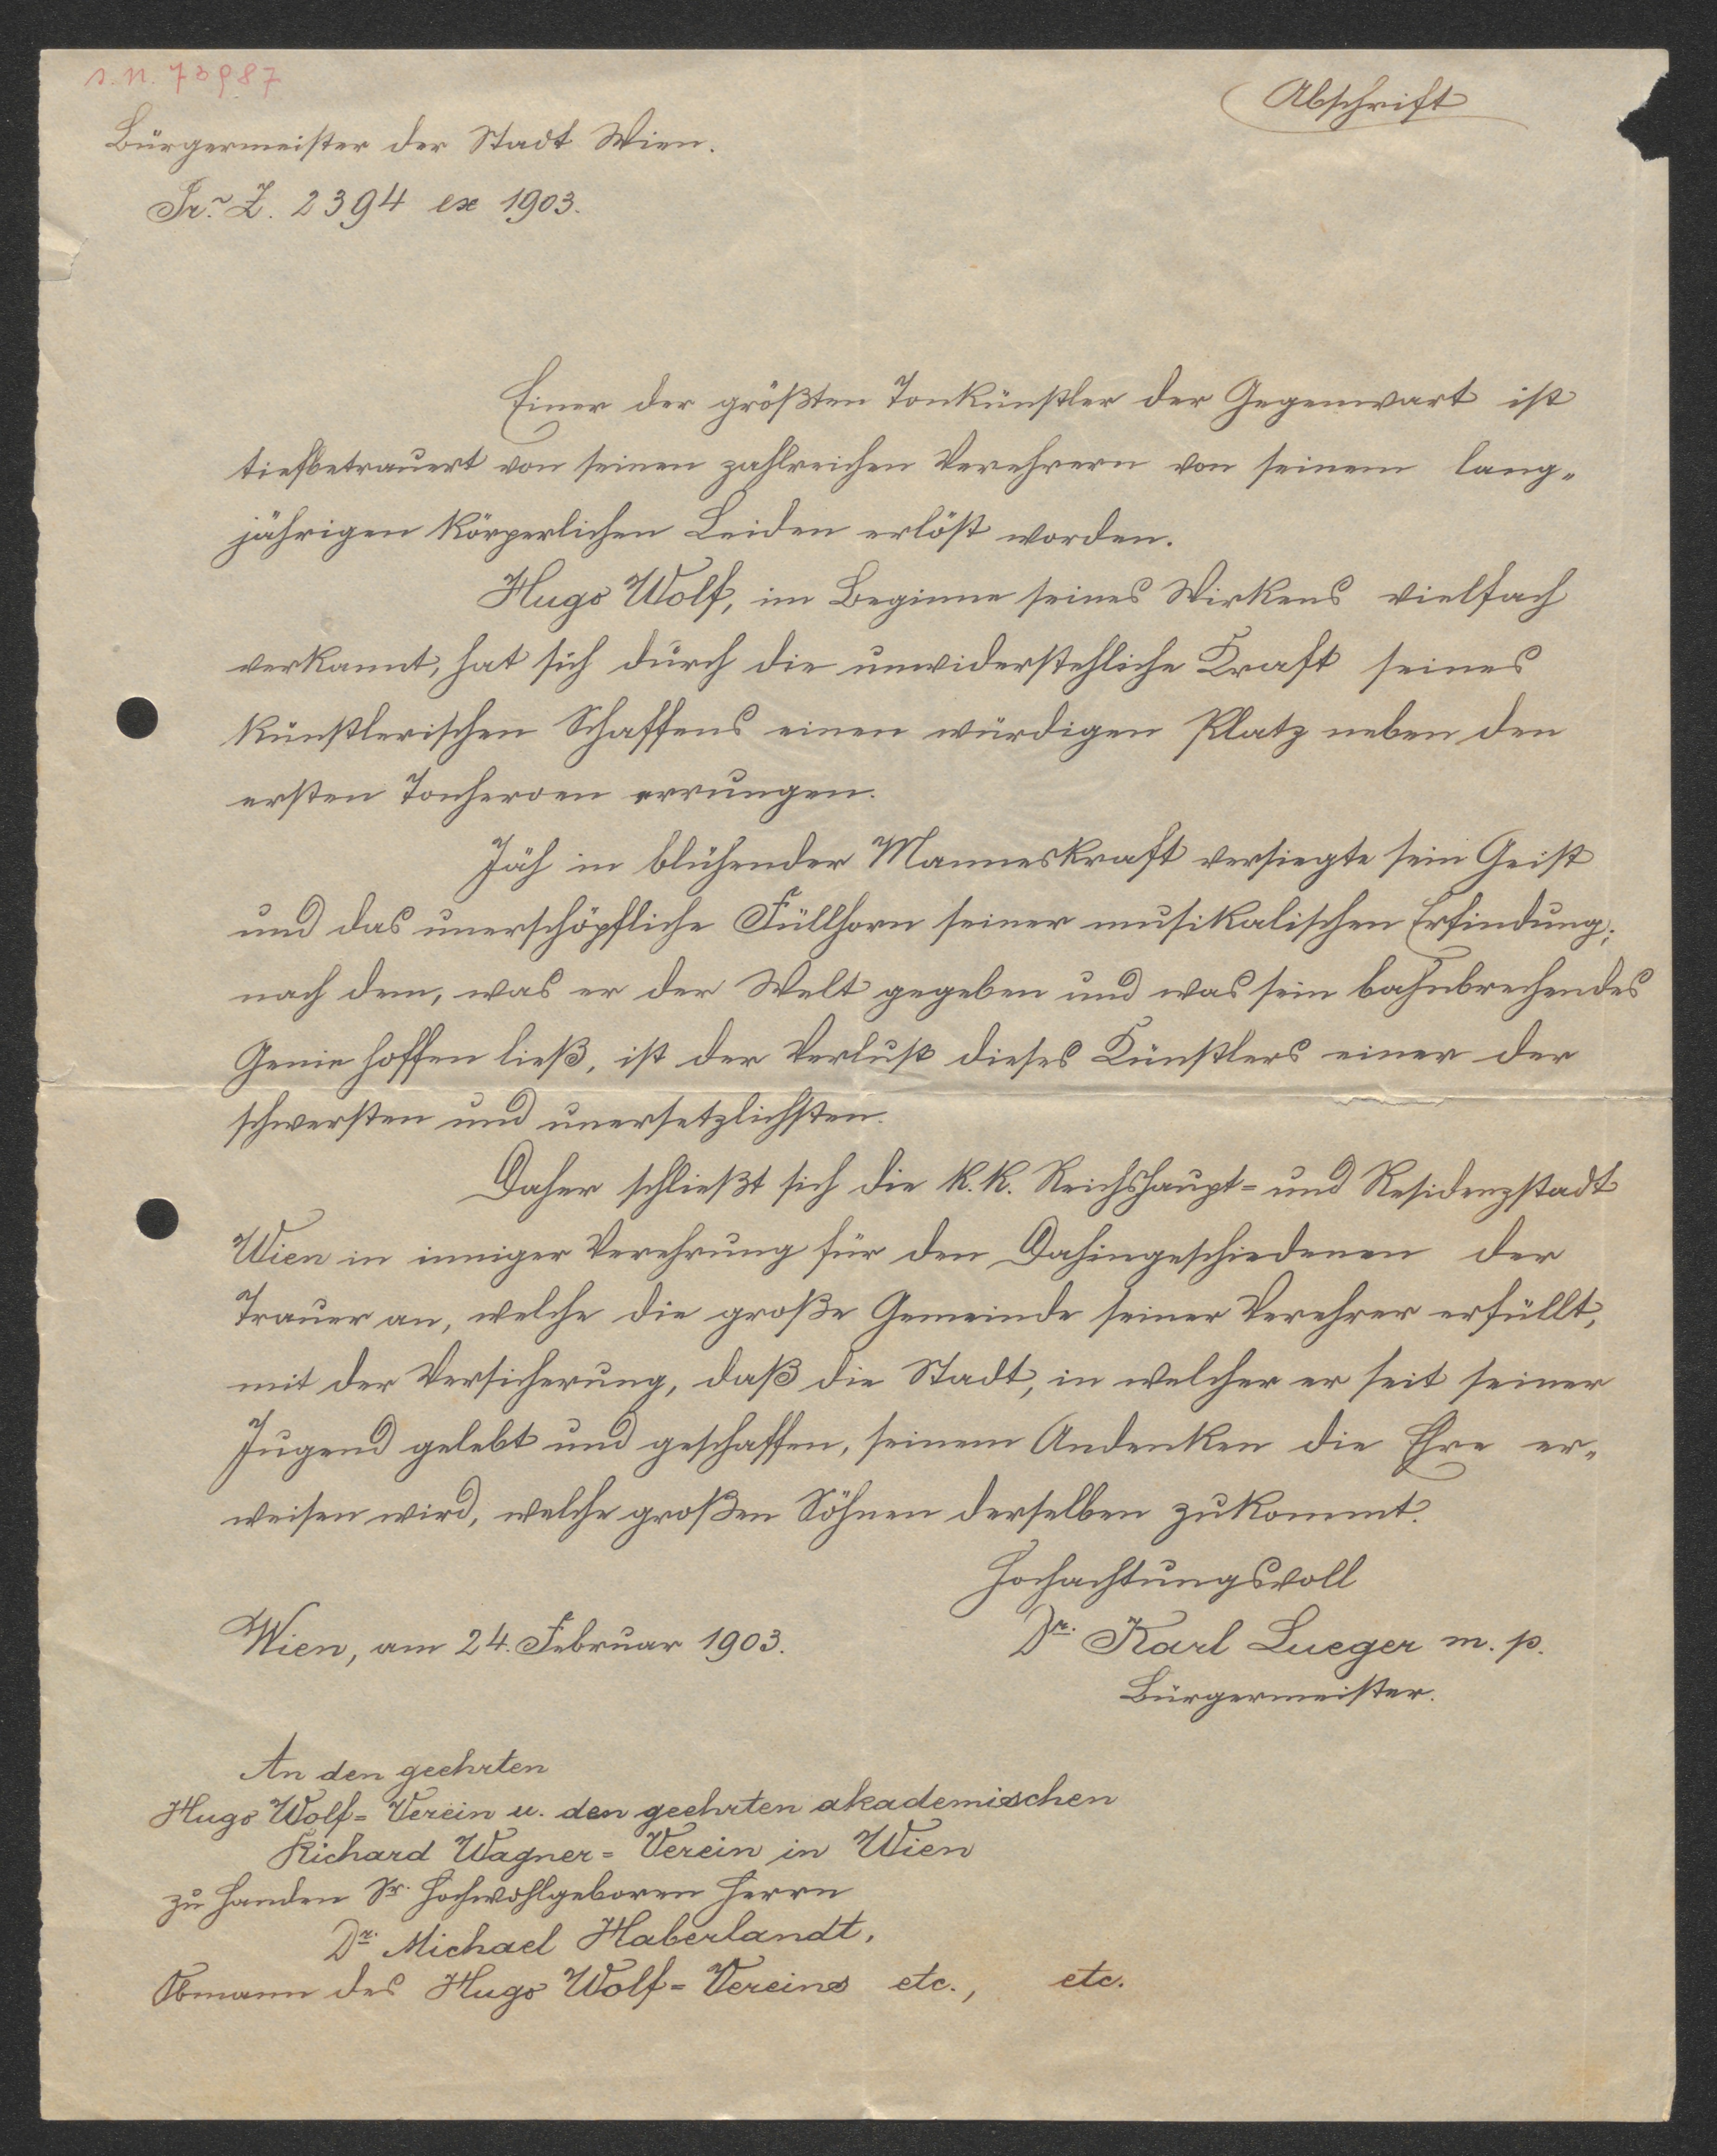 I. N. 73987
Abschrift
Bürgermeister der Stadt Wien.
Pr. Z. 2394 ex 1903.
Einer der größten Tonkünstler der Gegenwart ist
tiefbetrauert von seinen zahlreichen Verehrern von seinem lang-
jährigen körperlichen Leiden erlöst worden.
Hugo Wolf, im Beginne seines Wirkens vielfach
verkannt, hat sich durch die unwiderstehliche Kraft seines
künstlerischen Schaffens einen würdigen Platz neben den
ersten Tonheroen errungen.
Jäh in blühender Manneskraft versiegte sein Geist
und das unerschöpfliche Füllhorn seiner musikalischen Erfindung;
nach dem, was er der Welt gegeben und was sein bahnbrechendes
Genie hoffen ließ, ist der Verlust dieses Künstlers einer der
schwersten und unersetzlichsten.
Daher schließt sich die k. k. Reichshaupt- und Residenzstadt
Wien in inniger Verehrung für den Dahingeschiedenen der
Trauer an, welche die große Gemeinde seiner Verehrer erfüllt,
mit der Versicherung, daß die Stadt, in welcher er seit seiner
Jugend gelebt und geschaffen, seinem Andenken die Ehre er-
weisen wird, welche großen Söhnen derselben zukommt.
Hochachtungsvoll
Wien, am 24. Februar 1903.
Dr. Karl Lueger m. p.
Bürgermeister.
An den geehrten
Hugo Wolf-Verein u. den geehrten akademischen
Richard Wagner-Verein in Wien
zu Handen Sr. Hochwohlgeboren Herrn
Dr. Michael Haberlandt,
Obmann des Hugo Wolf-Vereins etc., etc.